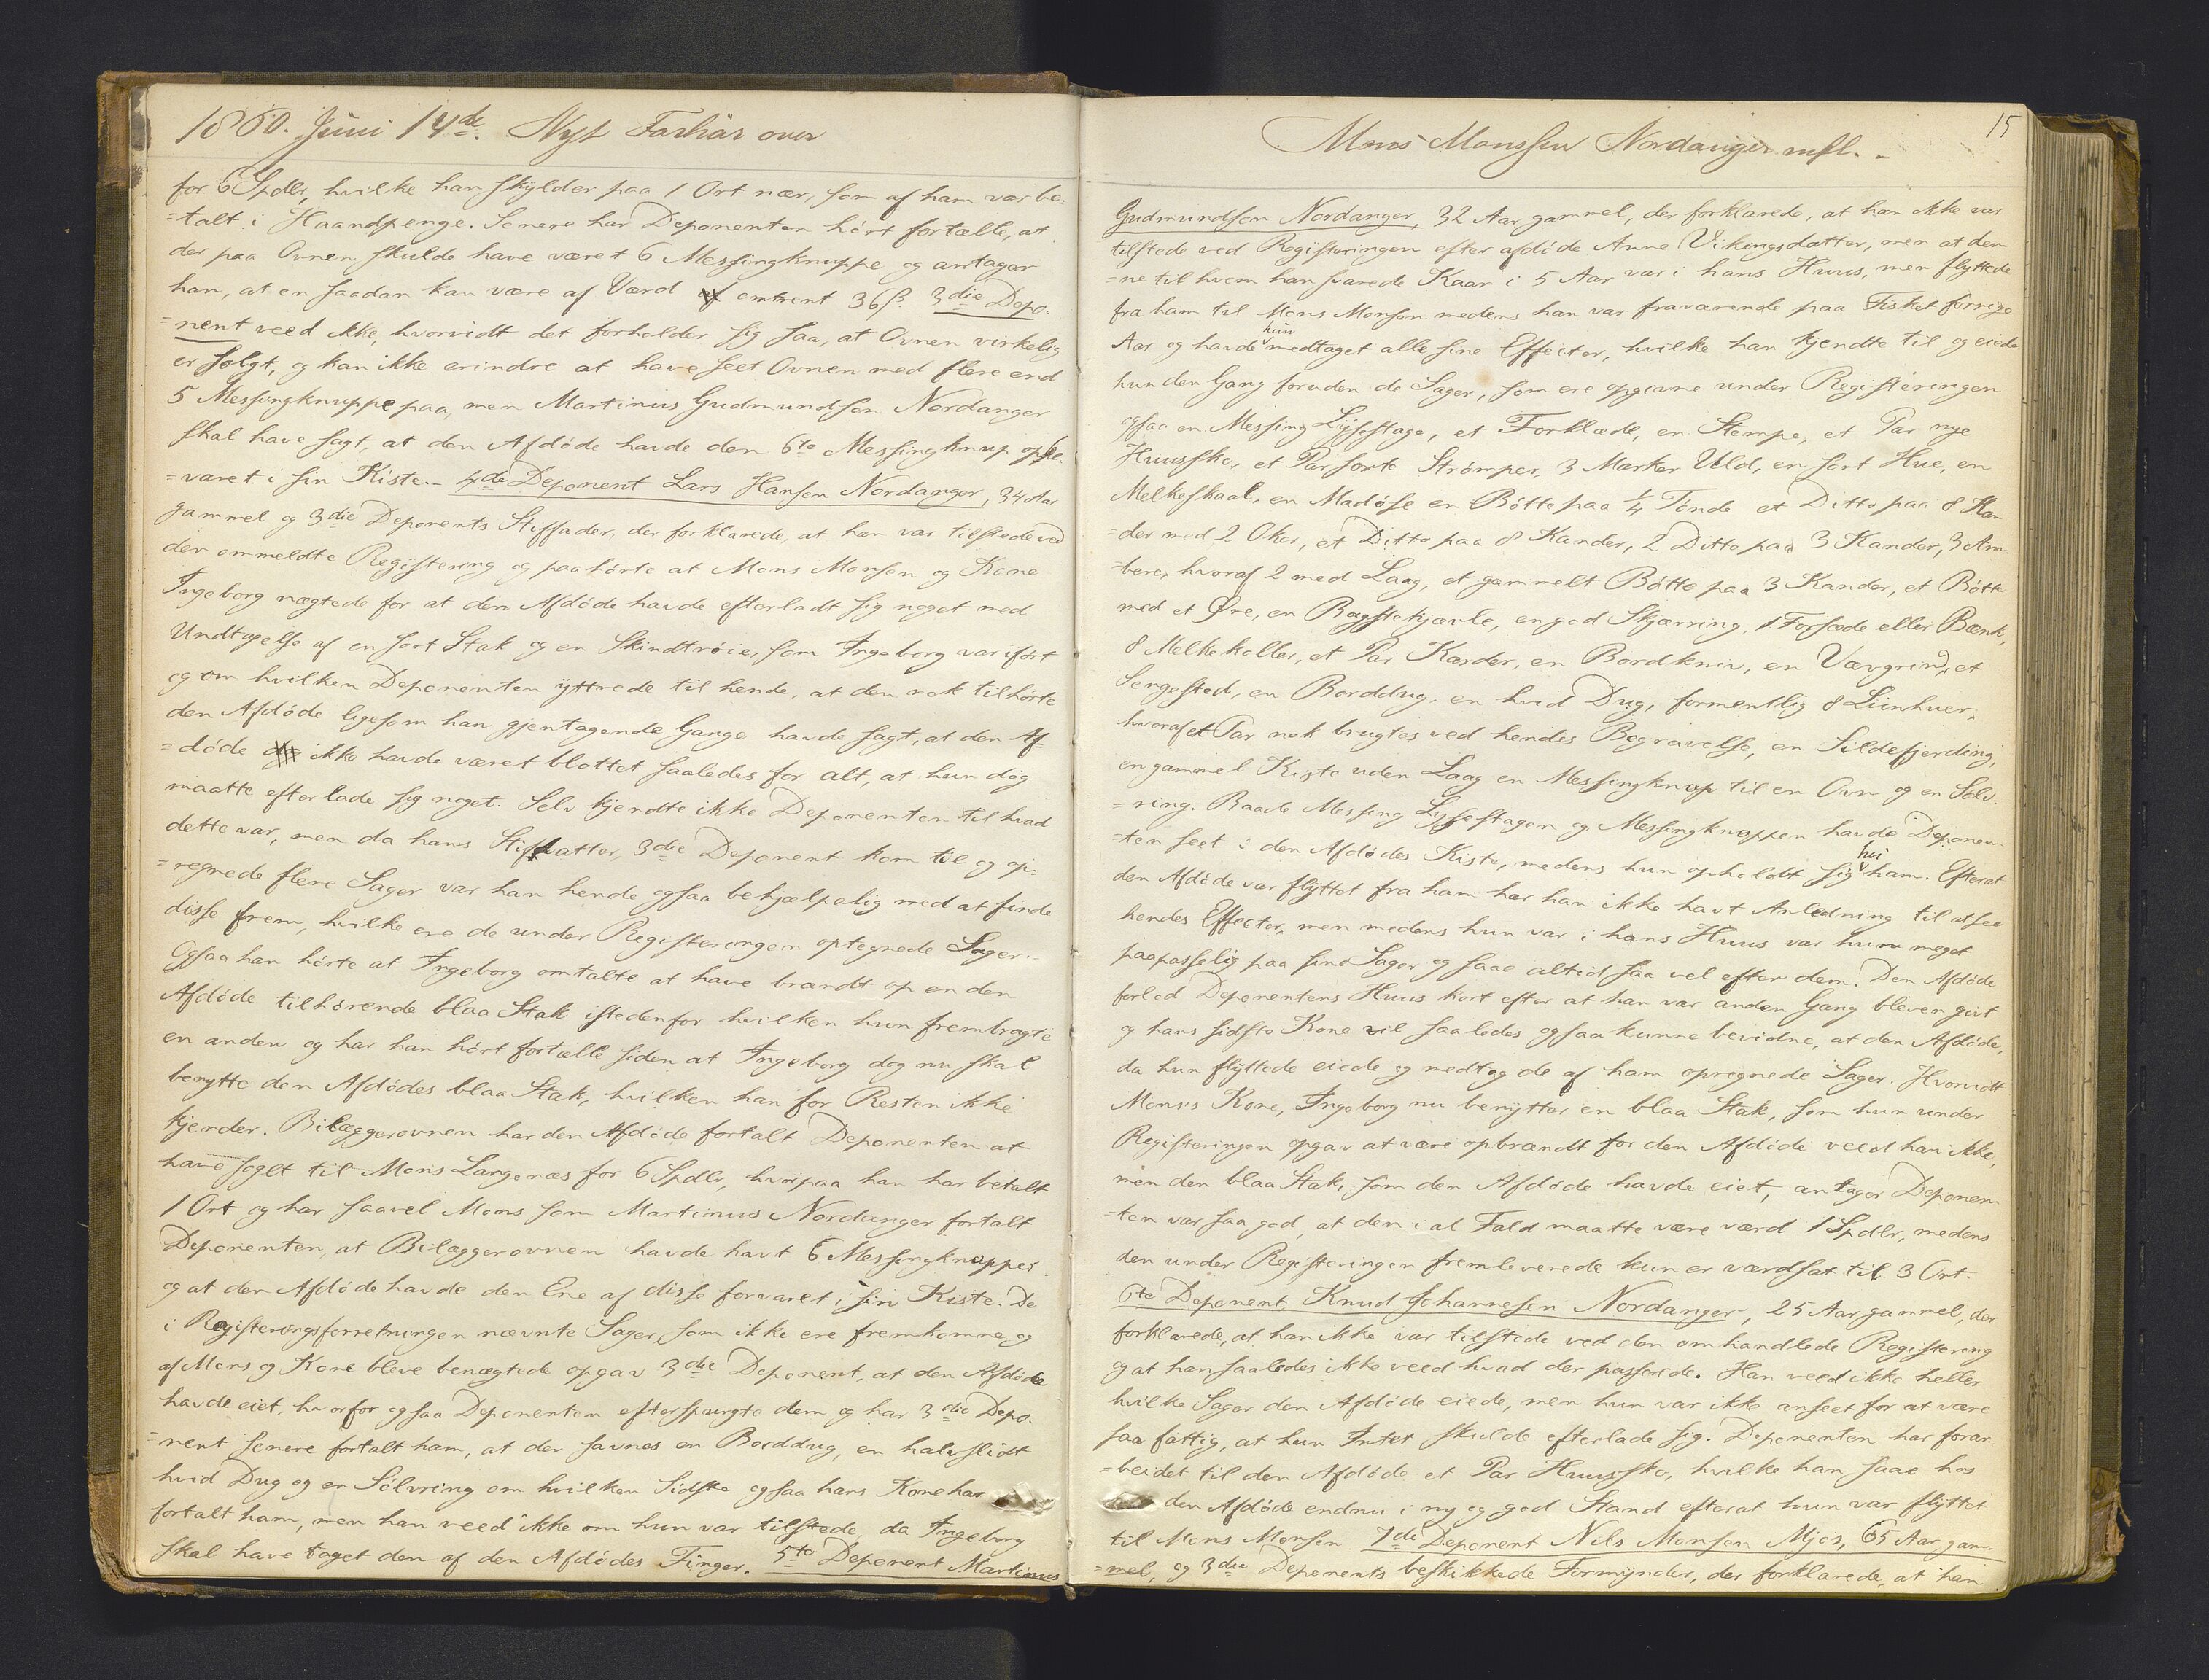 1860. Juni 14de. Nyt Forhör over
for 6 Spdlr, hvilke han skylder paa 1 Ort nær, som af ham var be-
=talt i Haandpenge. Senere har Deponenten hört fortælle, at
der paa Ovnen skulde have været 6 Messingknuppe og antager
han, at en saadan kan være af Værd omtrent 36 ß. 3die Depo-
=nent veed ikke, hvorvidt det forholder sig saa, at Ovnen virkelig
er solgt, og kan ikke erindre at have seet Ovnen med flere end
5 Messingknuppe paa, men Martinus Gudmundsen Nordanger
skal have sagt, at den Afdöde havde den 6te Messingknup opbe-
=varet i sin Kiste.- 4de Deponent Lars Hansen Nordanger, 34 Aar
gammel og 3die Deponents Stiffader, der forklarede, at han var tilstede ved
den ommeldte Registering og paahörte at Mons Monsen og Kone
Ingeborg nægtede for at den Afdöde havde efterladt sig noget med
Undtagelse af en sort Stak og en Skindtröie, som Ingeborg var ifört
og om hvilken Deponenten yttrede til hende, at den nok tilhörte
den Afdöde ligesom han gjentagende Gange havde sagt, at den Af-
=döde ikke havde været blottet saaledes for alt, at hun dog
maatte efterlade sig noget. Selv kjendte ikke Deponenten til hvad
dette var, men da hans Stifdatter, 3die Deponent kom til og op-
=regnede flere Sager var han hende ogsaa behjælpelig med at finde
disse frem, hvilke ere de under Registeringen optegnede Sager.-
Ogsaa han hörte at Ingeborg omtalte at have brændt op en den
Afdöde tilhörende blaa Stak istedenfor hvilken hun frembragte
en anden og har han hört fortælle siden at Ingeborg dog nu skal
benytte den Afdödes blaa Stak, hvilken han for Resten ikke
kjender. Bilæggerovnen har den Afdöde fortalt Deponenten at
have solgt til Mons Langenæs for 6 Spdlr, hvorpaa han har betalt
1 Ort og har saavel Mons som Martinus Nordanger fortalt
Deponenten, at Bilæggerovnen havde havt 6 Messingknapper
og at den Afdöde havde den Ene af disse forvaret i sin Kiste. De
i Registeringsforretningen nævnte Sager, som ikke ere fremkomne og
af Mons og Kone bleve benægtede opgav 3die Deponent, at den Afdöde
havde eiet, hvorfor ogsaa Deponenten efterspurgte dem og har 3die Depo-
=nent senere fortalt ham, at der savnes en Borddug, en halvslidt
hvid Dug og en Sölvring om hvilken Sidste ogsaa hans Kone har
fortalt ham, men han veed ikke om hun var tilstede, da Ingeborg
skal have taget den af den Afdödes Finger. 5te Deponent Martinus
15
Mons Monssen Nordanger mfl. -
Gudmundsen Nordanger, 32 Aar gammel, der forklarede, at han ikke var
tilstede ved Registeringen efter afdöde Anne Vikingsdatter, men at den
=ne til hvem han svarede Kaar i 5 Aar var i hans Huus, men flyttede
fra ham til Mons Monsen medens han var fraværende paa Fisket forrige
Aar og havde hun medtaget alle sine Effecter, hvilke han kjendte til og eiede
hun den Gang foruden de Sager, som ere opgivne under Registeringen
ogsaa en Messing Lysestage, et Forklæde, en Stampe, et Par nye
Huussko, et Par sorte Strömper, 3 Marker Uld, en sort Hue, en
Melkeskaal, en Madöse en Bötte paa ¼ Tönde et Ditto paa 8 Kan
=der med 2 Oker, et Ditto paa 8 Kander, 2 Ditto paa 3 Kander, 3 Am
=bere, hvoraf 2 med Laag, et gammelt Bötte paa 3 Kander, et Bötte
med et Öre, en Bagstekjævle, en god Skjærring, 1 Forsæde eller Bænk,
8 Melkekoller, et Par Karder, en Bordkniv, en Vævgrind, et
Sengested, en Borddug, en hvid Dug, formentlig 8 Liinhuer,
hvoraf et Par nok brugtes ved hendes Begravelse, en Sildefjerding,
en gammel Kiste uden Laag en Messingknap til en Ovn og en Sölv-
=ring. Baade Messing Lysestagen og Messingknappen havde Deponen-
=ten seet i den Afdödes Kiste, medens hun opholdt sig hos ham. Efterat
den Afdöde var flyttet fra ham har han ikke havt Anledning til at see
hendes Effecter, men medens hun var i hans Huus var hun meget
paapasselig paa sine Sager og saae altid saa vel efter dem. Den Afdöde
forlod Deponentens Huus kort efter at han var anden Gang bleven givt
og hans sidste Kone vil saaledes ogsaa kunne bevidne, at den Afdöde,
da hun flyttede eiede og medtog de af ham opregnede Sager. Hvorvidt
Mons's Kone, Ingeborg nu benytter en blaa Stak, som hun under
Registeringen opgav at være opbrændt for den Afdöde veed han ikke,
men den blaa Stak, som den Afdöde havde eiet, antager Deponen-
=ten var saa god at den i al Fald maatte være værd 1 Spdlr, medens
den under Registeringen fremleverede kun er værdsat til 3 Ort.
6te Deponent Knud Johannesen Nordanger, 25 Aar gammel, der
forklarede, at han ikke var tilstede ved den omhandlede Registering
og at han saaledes ikke veed hvad der passerede. Han veed ikke heller
hvilke Sager den Afdöde eiede, men hun var ikke anseet for at være
saa fattig, at hun Intet skulde efterlade sig. Deponenten har forar-
=beidet til den Afdöde et Par Huussko, hvilke han saae hos
den Afdöde endnu i ny og god Stand efterat hun var flyttet
til Mons Monsen. 7de Deponent Nils Monsen Mjös, 65 Aar gam-
=mel, og 3die Deponents beskikkede Formynder, der forklarede, at han